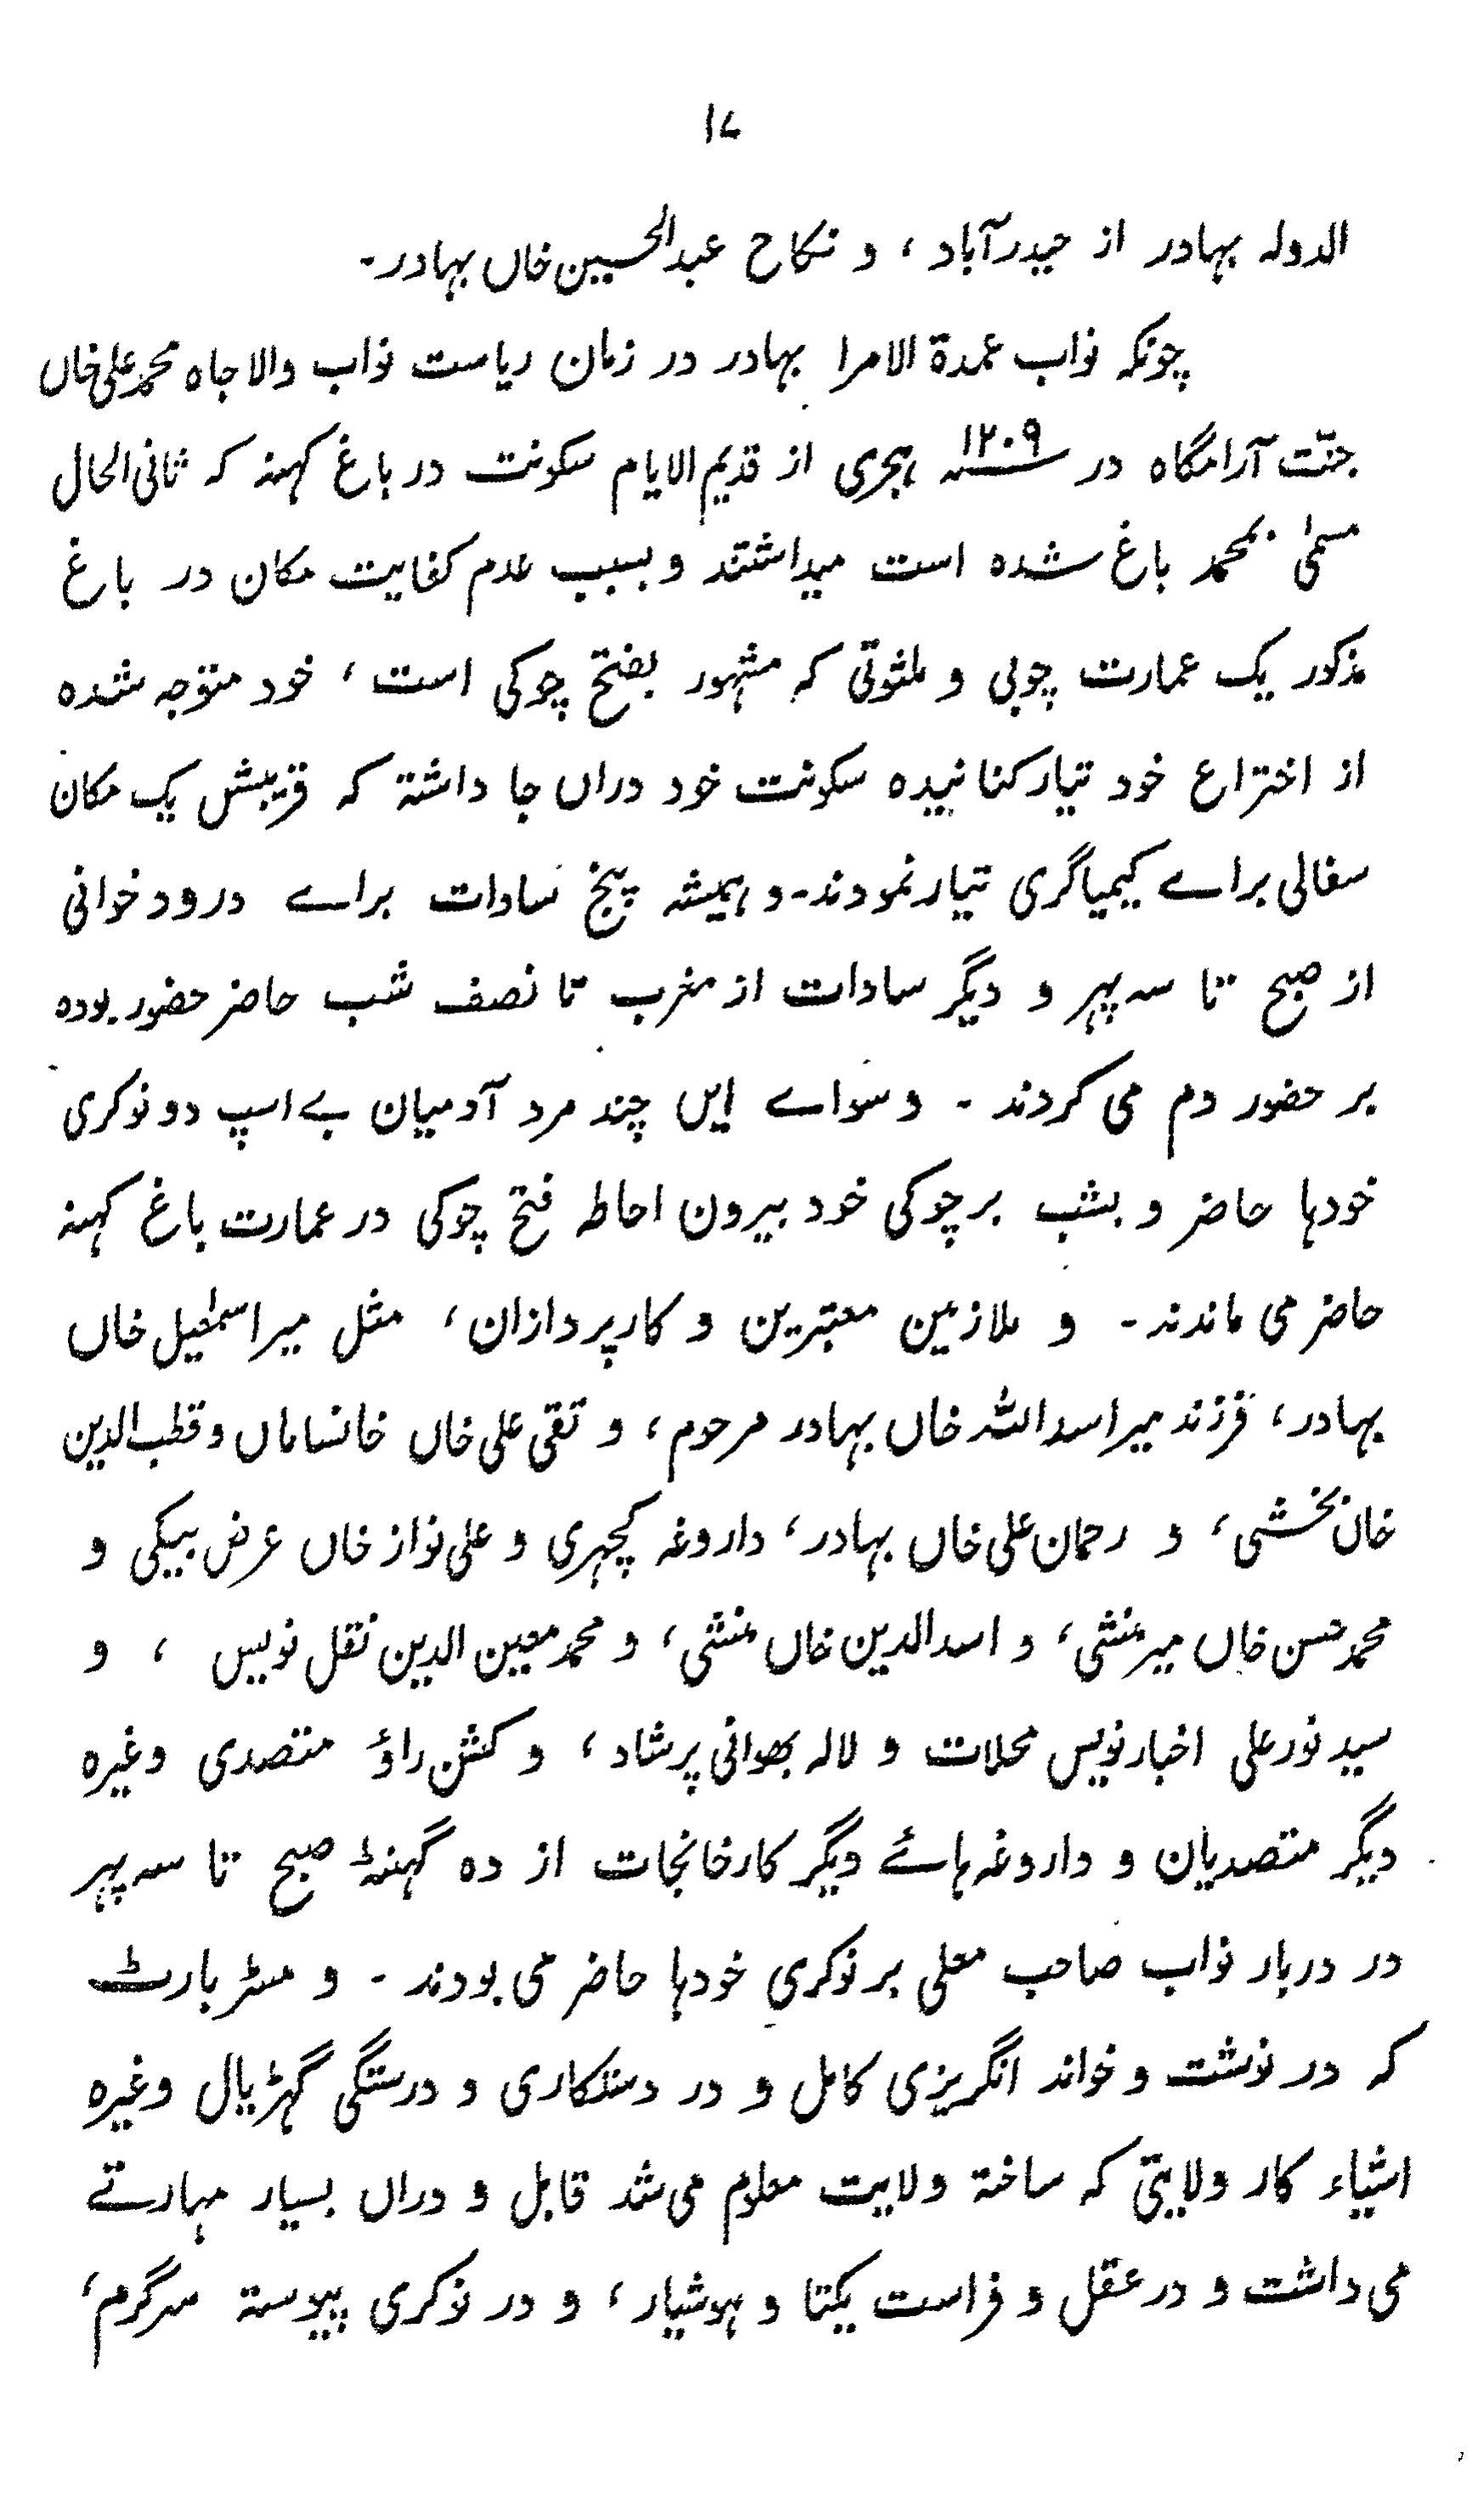 ۱۷
الدولہ بہادر از حیدرآباد ، و نکاح عبدالحسین خاں بہادر۔
چونکہ نواب عمدۃ الامرا بہادر در زمان ریاست نواب والا جاہ محمد علی خاں
جنّت آرامگاہ در سنہ ۱۲۰۹ ہجری از قدیم الایام سکونت در باغ کہنہ کہ ثانی الحال
مسمّٰی بمحمد باغ شدہ است میداشتند و بسبب عدم کفایت مکان در باغ
مذکور یک عمارت چوبی و ملثوتی کہ مشہور بفتح چوکی است ، خود متوّجہ شدہ
از اختراع خود تیار کنانیدہ سکونت خود دراں جا داشتہ کہ قریبش یک مکان
سفالی براے کیمیاگری تیار نمودند۔ و ہمیشہ پنج سادات براے درود خوانی
از صبح تا سہ پہر و دیگر سادات از مغرب تا نصف شب حاضر حضور بودہ
بر حضور دم می کردند ۔ و سواے ایں چند مرد آدمیان بے اسپ دو نوکری
خودہا حاضر و بشب بر چوکی خود بیرون احاطہ فتح چوکی در عمارت باغ کہنہ
حاضر می ماندند ۔ و ملازمین معتبرین و کارپردازان ، مثل میر اسمٰعیل خاں
بہادر ، فرزند میر اسد اللہ خاں بہادر مرحوم ، و تقی علی خاں خانساماں و قطب الدین
خان بخشی ، و رحمان علی خاں بہادر ، داروغہ کچہری و علی نواز خاں عرض بیگی و
محمد حسن خاں میر منشی ، و اسد الدین خاں منشی ، و محمد معین الدین نقل نویس ، و
سید نور علی اخبار نویس محلات و لالہ بھوانی پرشاد ، و کشن راؤ متصدی وغیرہ
دیگر متصدیان و داروغہ ہائے دیگر کارخانجات از دہ گہنٹۂ صبح تا سہ پہر
در دربار نواب صاحب معلی بر نوکری خودہا حاضر می بودند ۔ و مسٹر بارٹ
کہ در نوشت و خواند انگریزی کامل و در دستکاری و درستگی گھڑیال وغیرہ
اشیاء کار ولایتی کہ ساختہ ولایت معلوم می شد قابل و دراں بسیار مہارتے
می داشت و در عقل و فراست یکتا و ہوشیار ، و در نوکری پیوستہ سرگرم ،